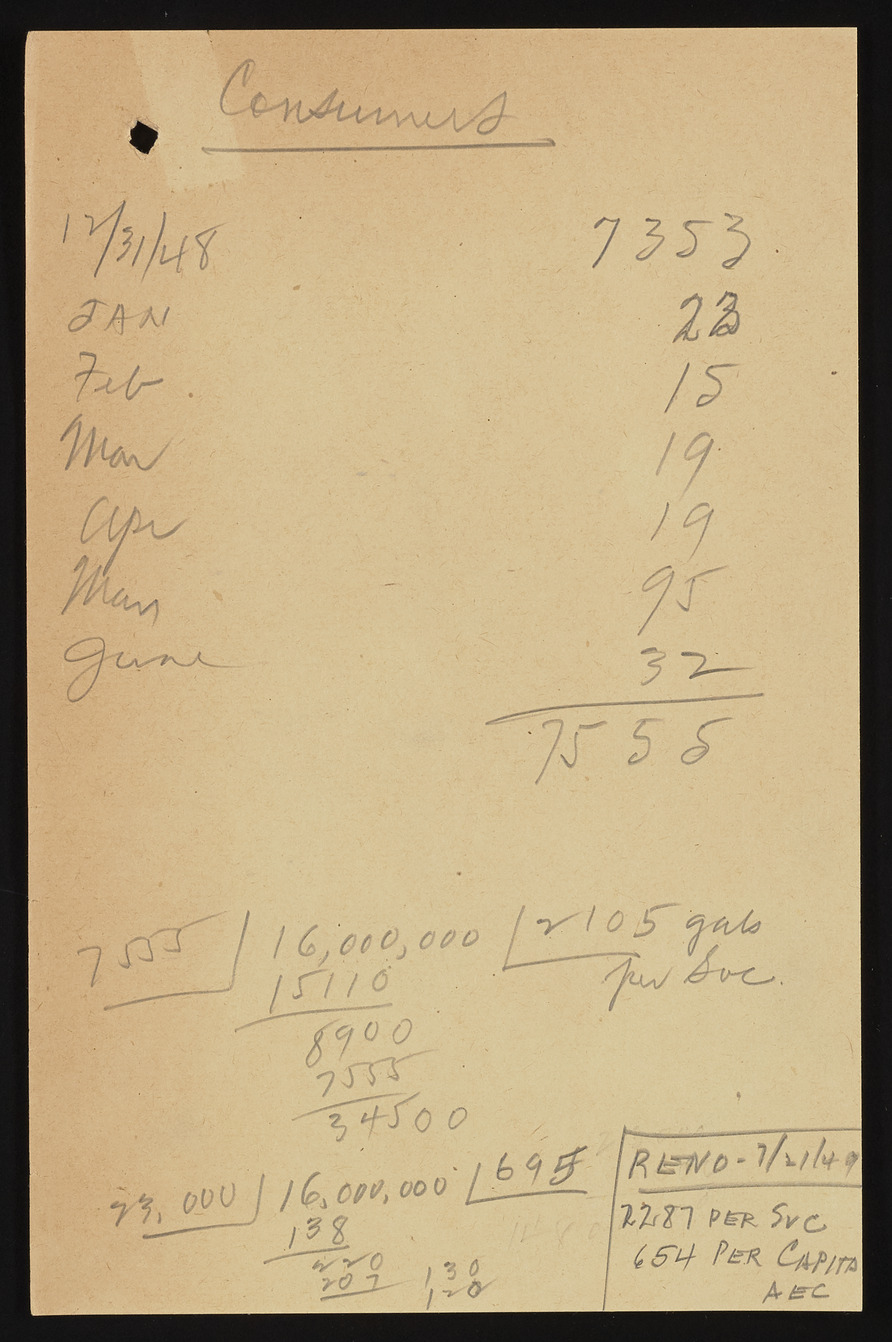 Consumers
12/31/48 7353
JAN 22
Feb 15
Mar 19
Apr 19
May 95
June 32
7555
7555 16,000,000 2105 gals
15110 per Svc.
8900
7555
34500
23,000 16,000,000 695
138
220
207 130
120
RENO - 7/21/49
2287 PER SVC
654 PER CAPITA
AEC